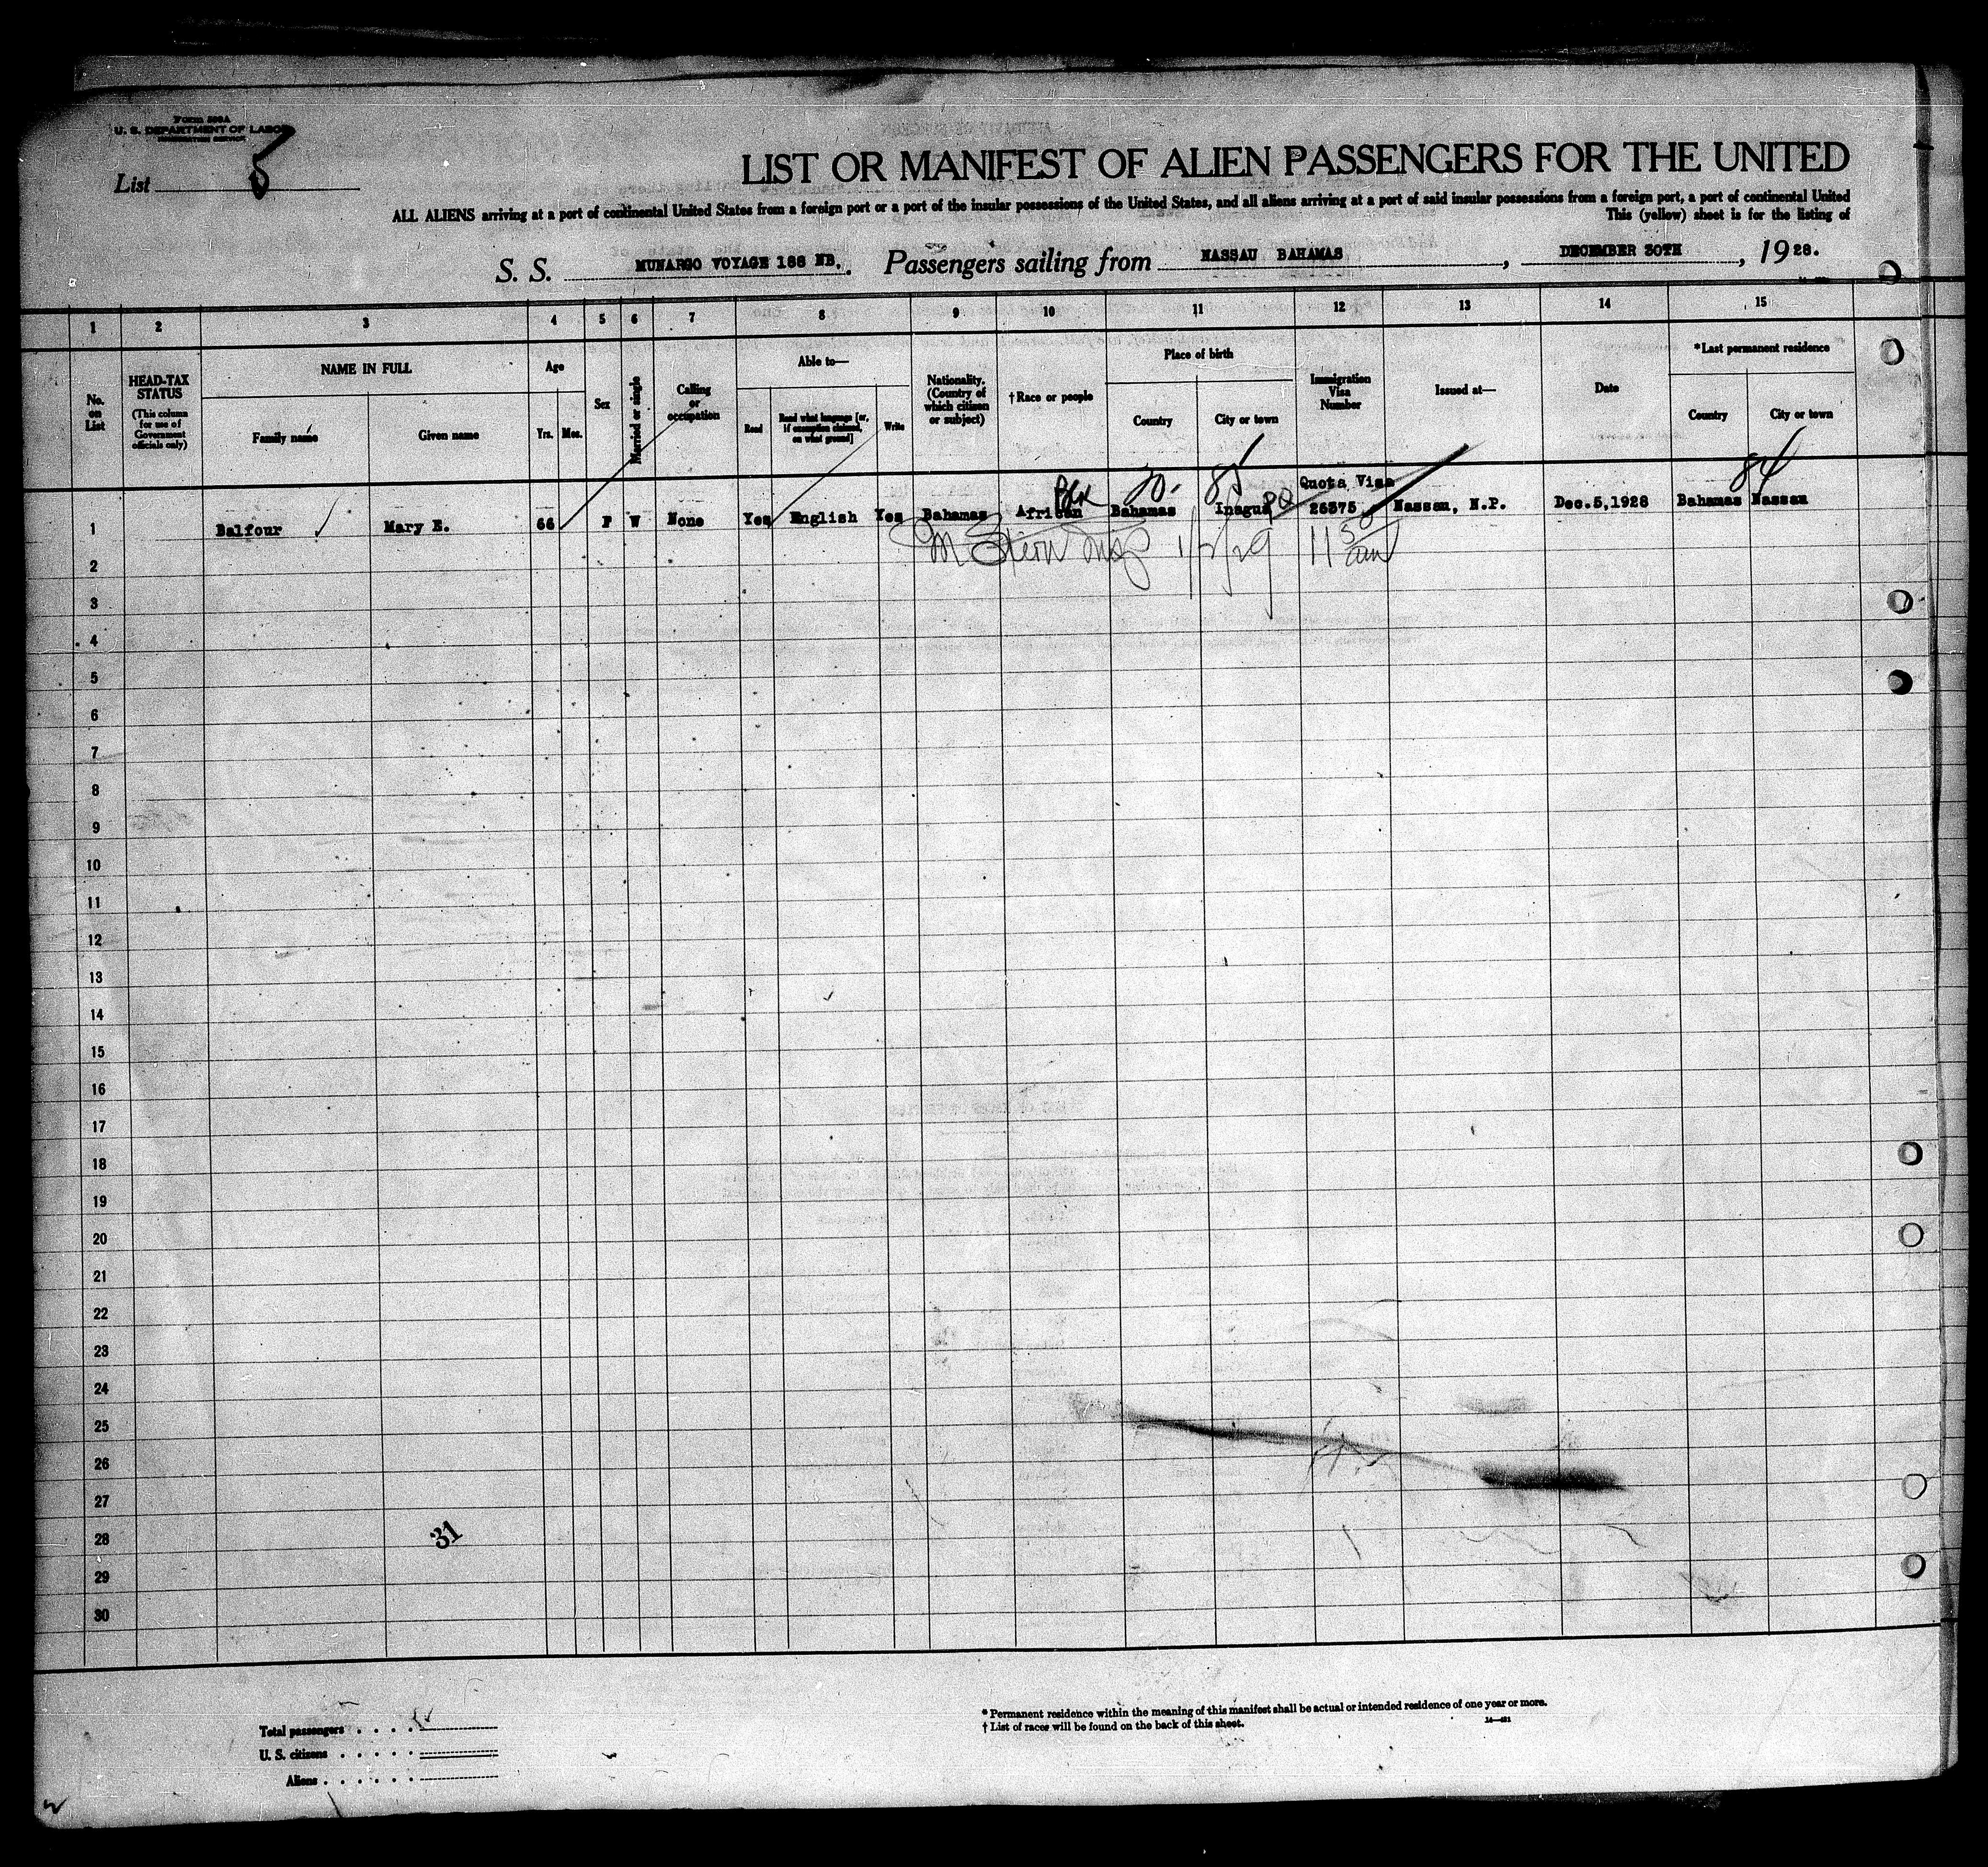 Form 500A
U. S. DEPARTMENT OF LABOR
IMMIGRATION SERVICE
List 8
LIST OR MANIFEST OF ALIEN PASSENGERS FOR THE UNITED
ALL ALIENS arriving at a port of continental United States from a foreign port or a port of the insular possessions of the United States, and all aliens arriving at a port of said insular possessions from a foreign port, a port of continental United
This (yellow) sheet is for the listing of
S. S. MUNARGO VOYAGE 188 NB. Passengers sailing from NASSAU BAHAMAS, DECEMBER 30TH, 1928.
1 2 3 4 5 6 7 8 9 10 11 12 13 14 15
No. on List
HEAD-TAX STATUS
(This column for use of Government officials only)
NAME IN FULL
Family name Given name
Age
Yrs. Mos.
Sex
Married or single
Calling or occupation
Able to—
Read
Read what language [or, if exemption claimed, on what ground]
Write
Nationality. (Country of which citizen or subject)
†Race or people
Place of birth
Country City or town
Immigration Visa Number
Issued at—
Date
*Last permanent residence
Country City or town
Blk 85 PO 84
Quota Visa
1 Balfour Mary E. 66 F W None Yes English Yes Bahamas African Bahamas Inagua 26375 Nassau, N.P. Dec.5,1928 Bahamas Nassau
11 50 am
2
3
4
5
6
7
8
9
10
11
12
13
14
15
16
17
18
19
20
21
22
23
24
25
26
27
28
31
29
30
Total passengers
U. S. citizens
Aliens
* Permanent residence within the meaning of this manifest shall be actual or intended residence of one year or more.
† List of races will be found on the back of this sheet.